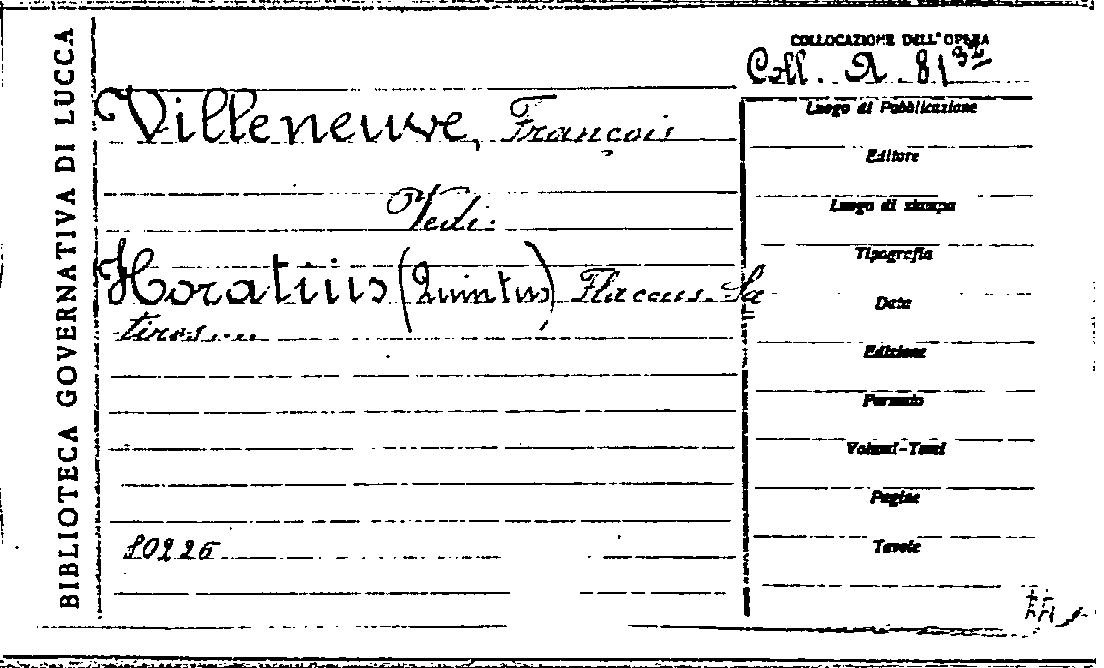 BIBLIOTECA GOVERNATIVA DI LUCCA
COLLOCAZIONE DELL'OPERA
Coll. A. 81
Villeneuve, François
Vedi:
Horatius (Quintus) Flaccus. Sa
tires....
80226
Luogo di Pubblicazione
Editore
Luogo di stampa
Tipografia
Data
Edizione
Formato
Volumi-Tomi
Pagine
Tavole